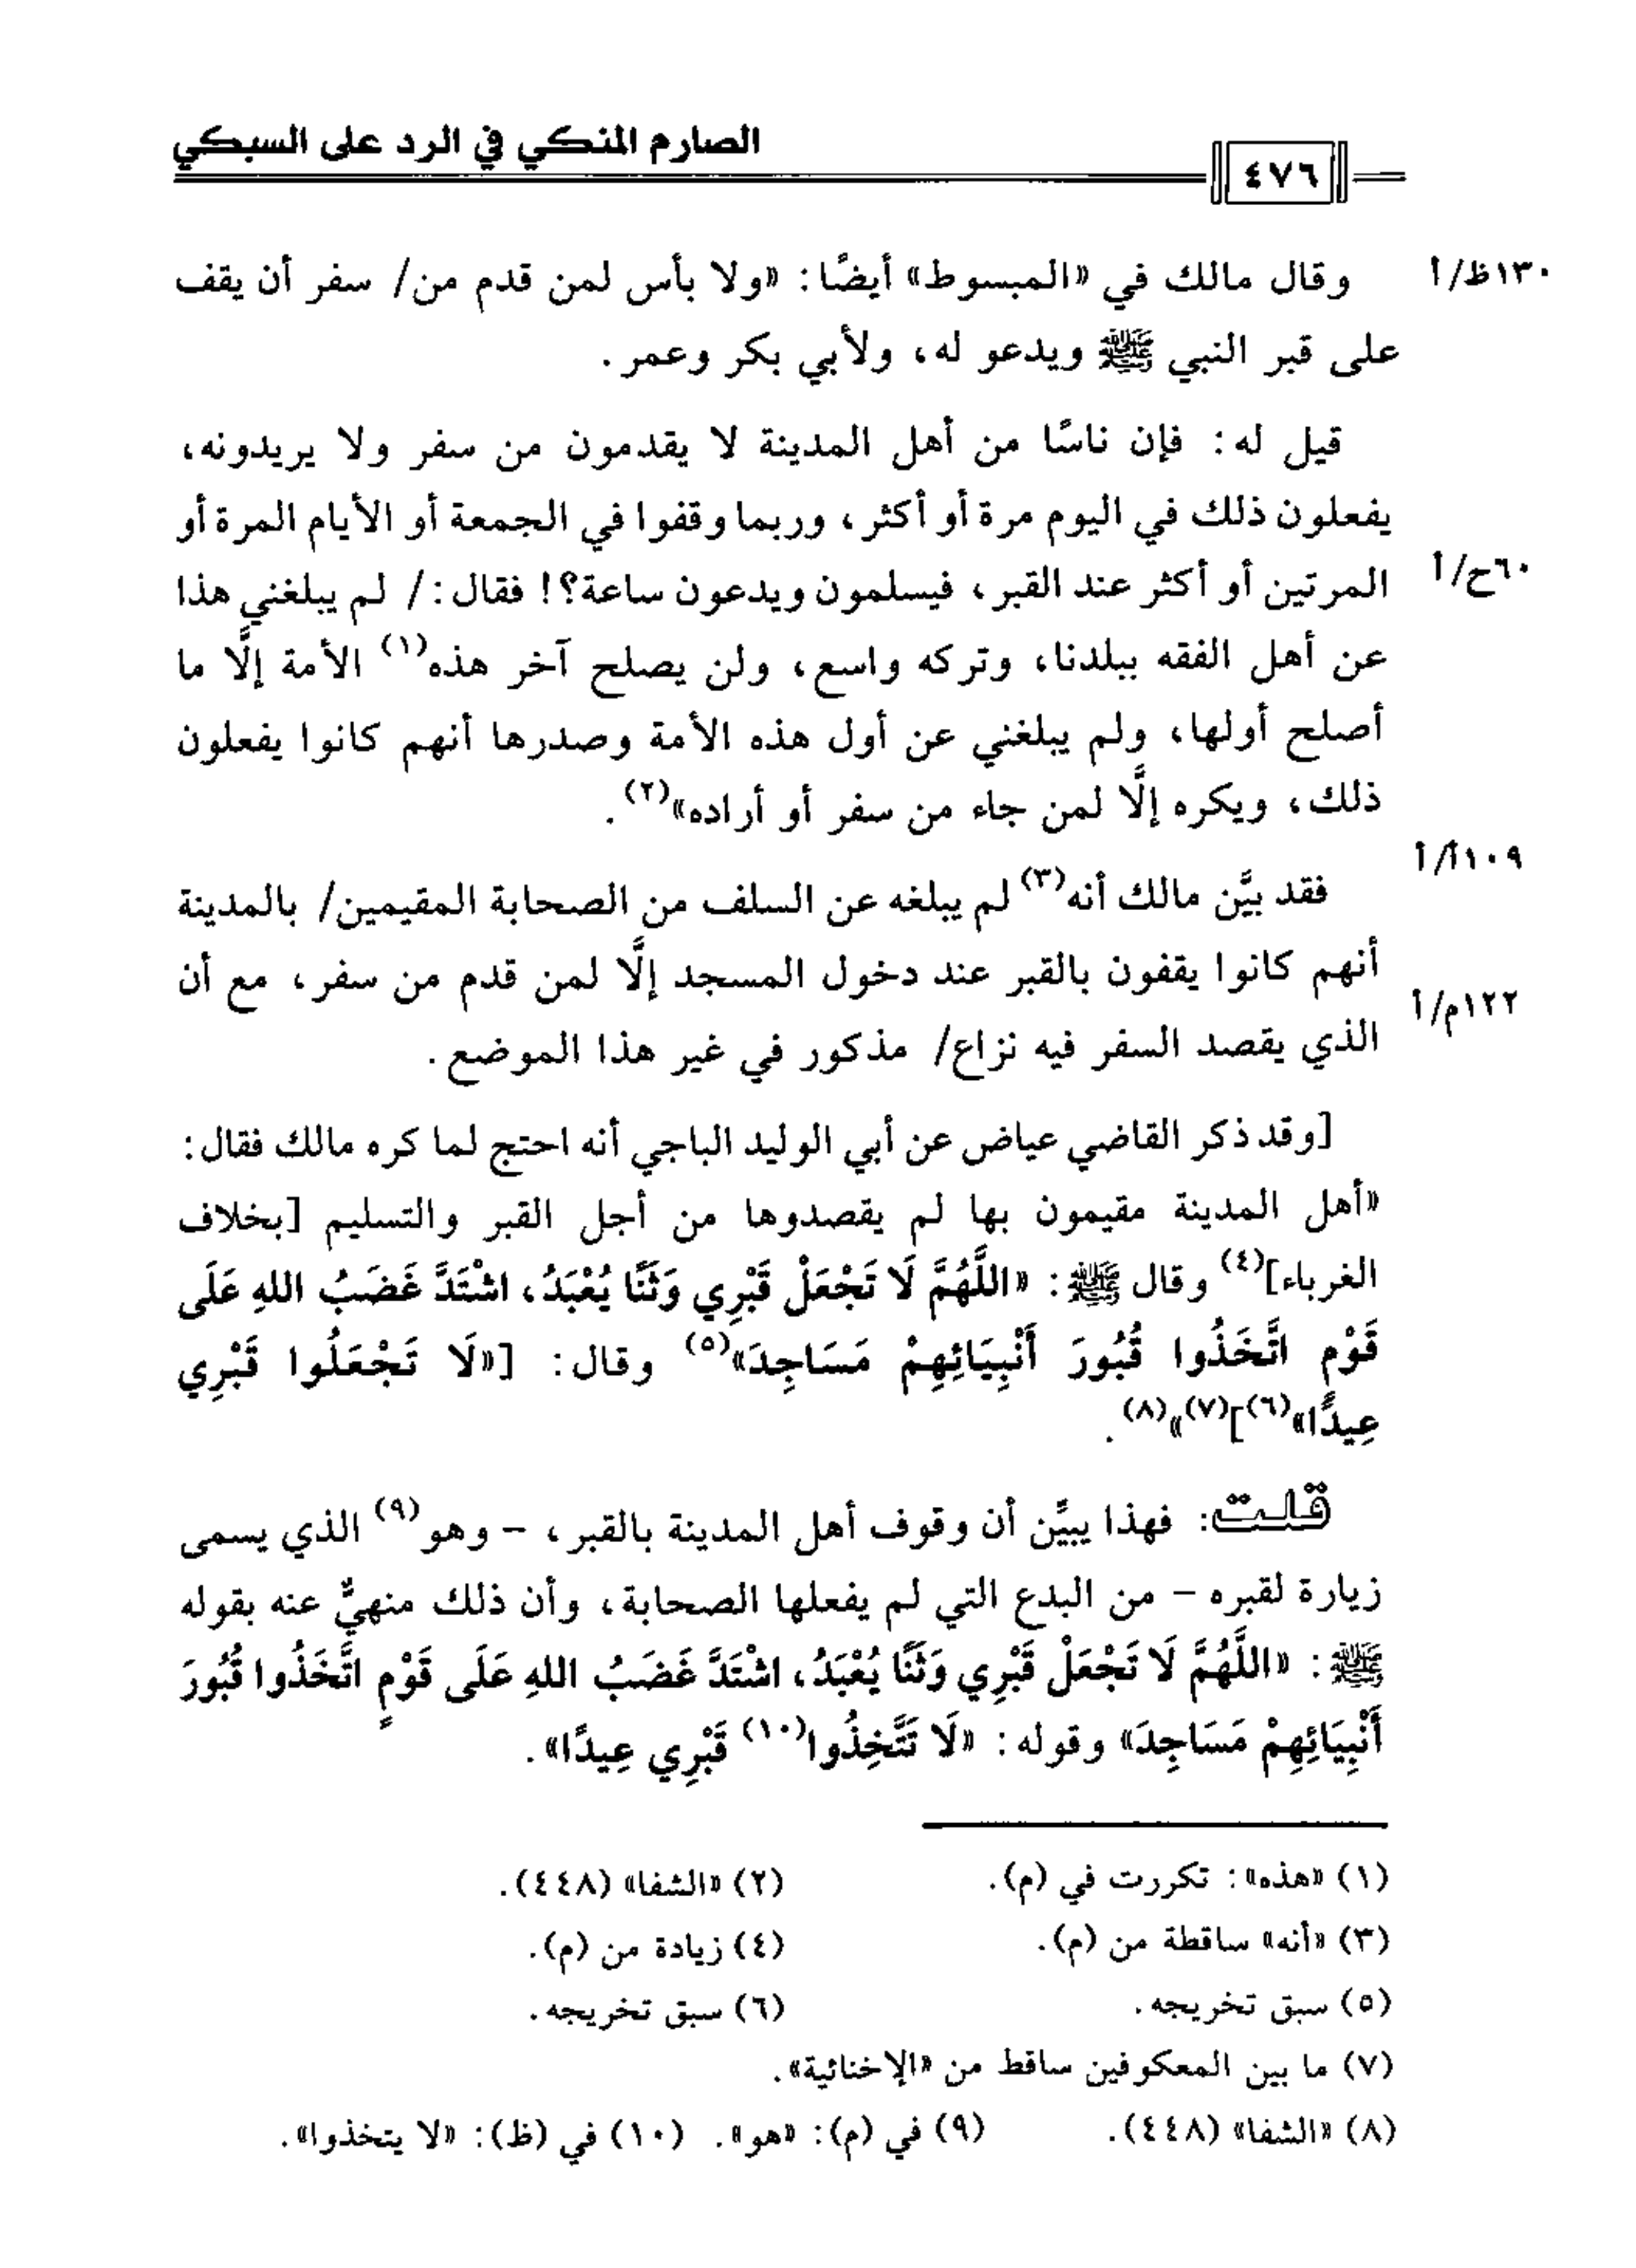 الصارم المنكي في الرد على السبكي
٤٧٦
وقال مالك في «المبسوط» أيضًا: «ولا بأس لمن قدم من/ سفر أن يقف
١٣٠ظ/أ
على قبر النبي ﷺ ويدعو له، ولأبي بكر وعمر.
قيل له: فإن ناسًا من أهل المدينة لا يقدمون من سفر ولا يريدونه،
يفعلون ذلك في اليوم مرة أو أكثر، وربما وقفوا في الجمعة أو الأيام المرة أو
المرتين أو أكثر عند القبر، فيسلمون ويدعون ساعة؟! فقال:/ لم يبلغني هذا
٦٠ح/أ
عن أهل الفقه ببلدنا، وتركه واسع، ولن يصلح آخر هذه(١) الأمة إلَّا ما
أصلح أولها، ولم يبلغني عن أول هذه الأمة وصدرها أنهم كانوا يفعلون
ذلك، ويكره إلَّا لمن جاء من سفر أو أراده»(٢).
١٠٩أ/أ
فقد بيَّن مالك أنه(٣) لم يبلغه عن السلف من الصحابة المقيمين/ بالمدينة
أنهم كانوا يقفون بالقبر عند دخول المسجد إلَّا لمن قدم من سفر، مع أن
١٢٢م/أ
الذي يقصد السفر فيه نزاع/ مذكور في غير هذا الموضع.
[وقد ذكر القاضي عياض عن أبي الوليد الباجي أنه احتج لما كره مالك فقال:
«أهل المدينة مقيمون بها لم يقصدوها من أجل القبر والتسليم [بخلاف
الغرباء](٤) وقال ﷺ: «اللَّهُمَّ لَا تَجْعَلْ قَبْرِي وَثَنًا يُعْبَدُ، اشْتَدَّ غَضَبُ اللهِ عَلَى
قَوْمٍ اتَّخَذُوا قُبُورَ أَنْبِيَائِهِمْ مَسَاجِدَ»(٥) وقال: [«لَا تَجْعَلُوا قَبْرِي
عِيدًا»(٦)](٧)»(٨).
قلت: فهذا يبيِّن أن وقوف أهل المدينة بالقبر، - وهو(٩) الذي يسمى
زيارة لقبره - من البدع التي لم يفعلها الصحابة، وأن ذلك منهيٌّ عنه بقوله
ﷺ: «اللَّهُمَّ لَا تَجْعَلْ قَبْرِي وَثَنًا يُعْبَدُ، اشْتَدَّ غَضَبُ اللهِ عَلَى قَوْمٍ اتَّخَذُوا قُبُورَ
أَنْبِيَائِهِمْ مَسَاجِدَ» وقوله: «لَا تَتَّخِذُوا(١٠) قَبْرِي عِيدًا».
(١) «هذه»: تكررت في (م). (٢) «الشفا» (٤٤٨).
(٣) «أنه» ساقطة من (م). (٤) زيادة من (م).
(٥) سبق تخريجه. (٦) سبق تخريجه.
(٧) ما بين المعكوفين ساقط من «الإخنائية».
(٨) «الشفا» (٤٤٨). (٩) في (م): «هو». (١٠) في (ظ): «لا يتخذوا».